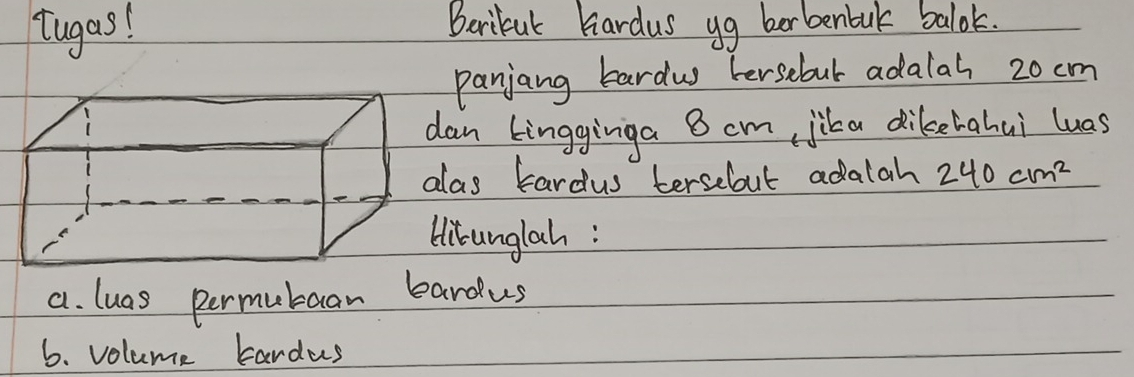 Tugas!
Berikut kardus yg berbentuk balok.
panjang kardus tersebut adalah 20 cm
dan tingginga 8 cm, jika diketahui luas
alas kardus tersebut adalah 240 cm²
Hitunglah :
a. luas permukaan kardus
b. volume kardus